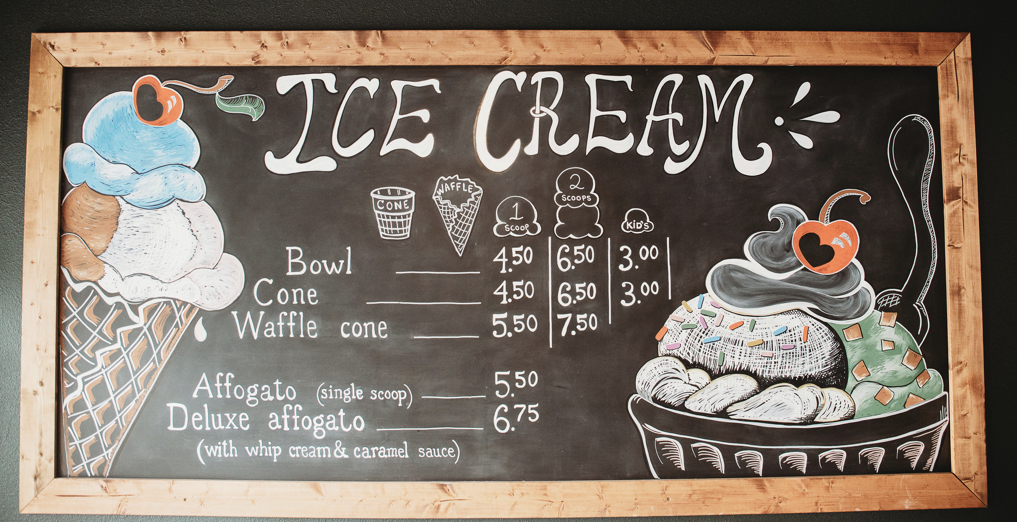 ICE CREAM
CONE WAFFLE 1 SCOOP 2 SCOOPS KID'S
Bowl 4.50 6.50 3.00
Cone 4.50 6.50 3.00
Waffle cone 5.50 7.50
Affogato (single scoop) 5.50
Deluxe affogato 6.75
(with whip cream & caramel sauce)